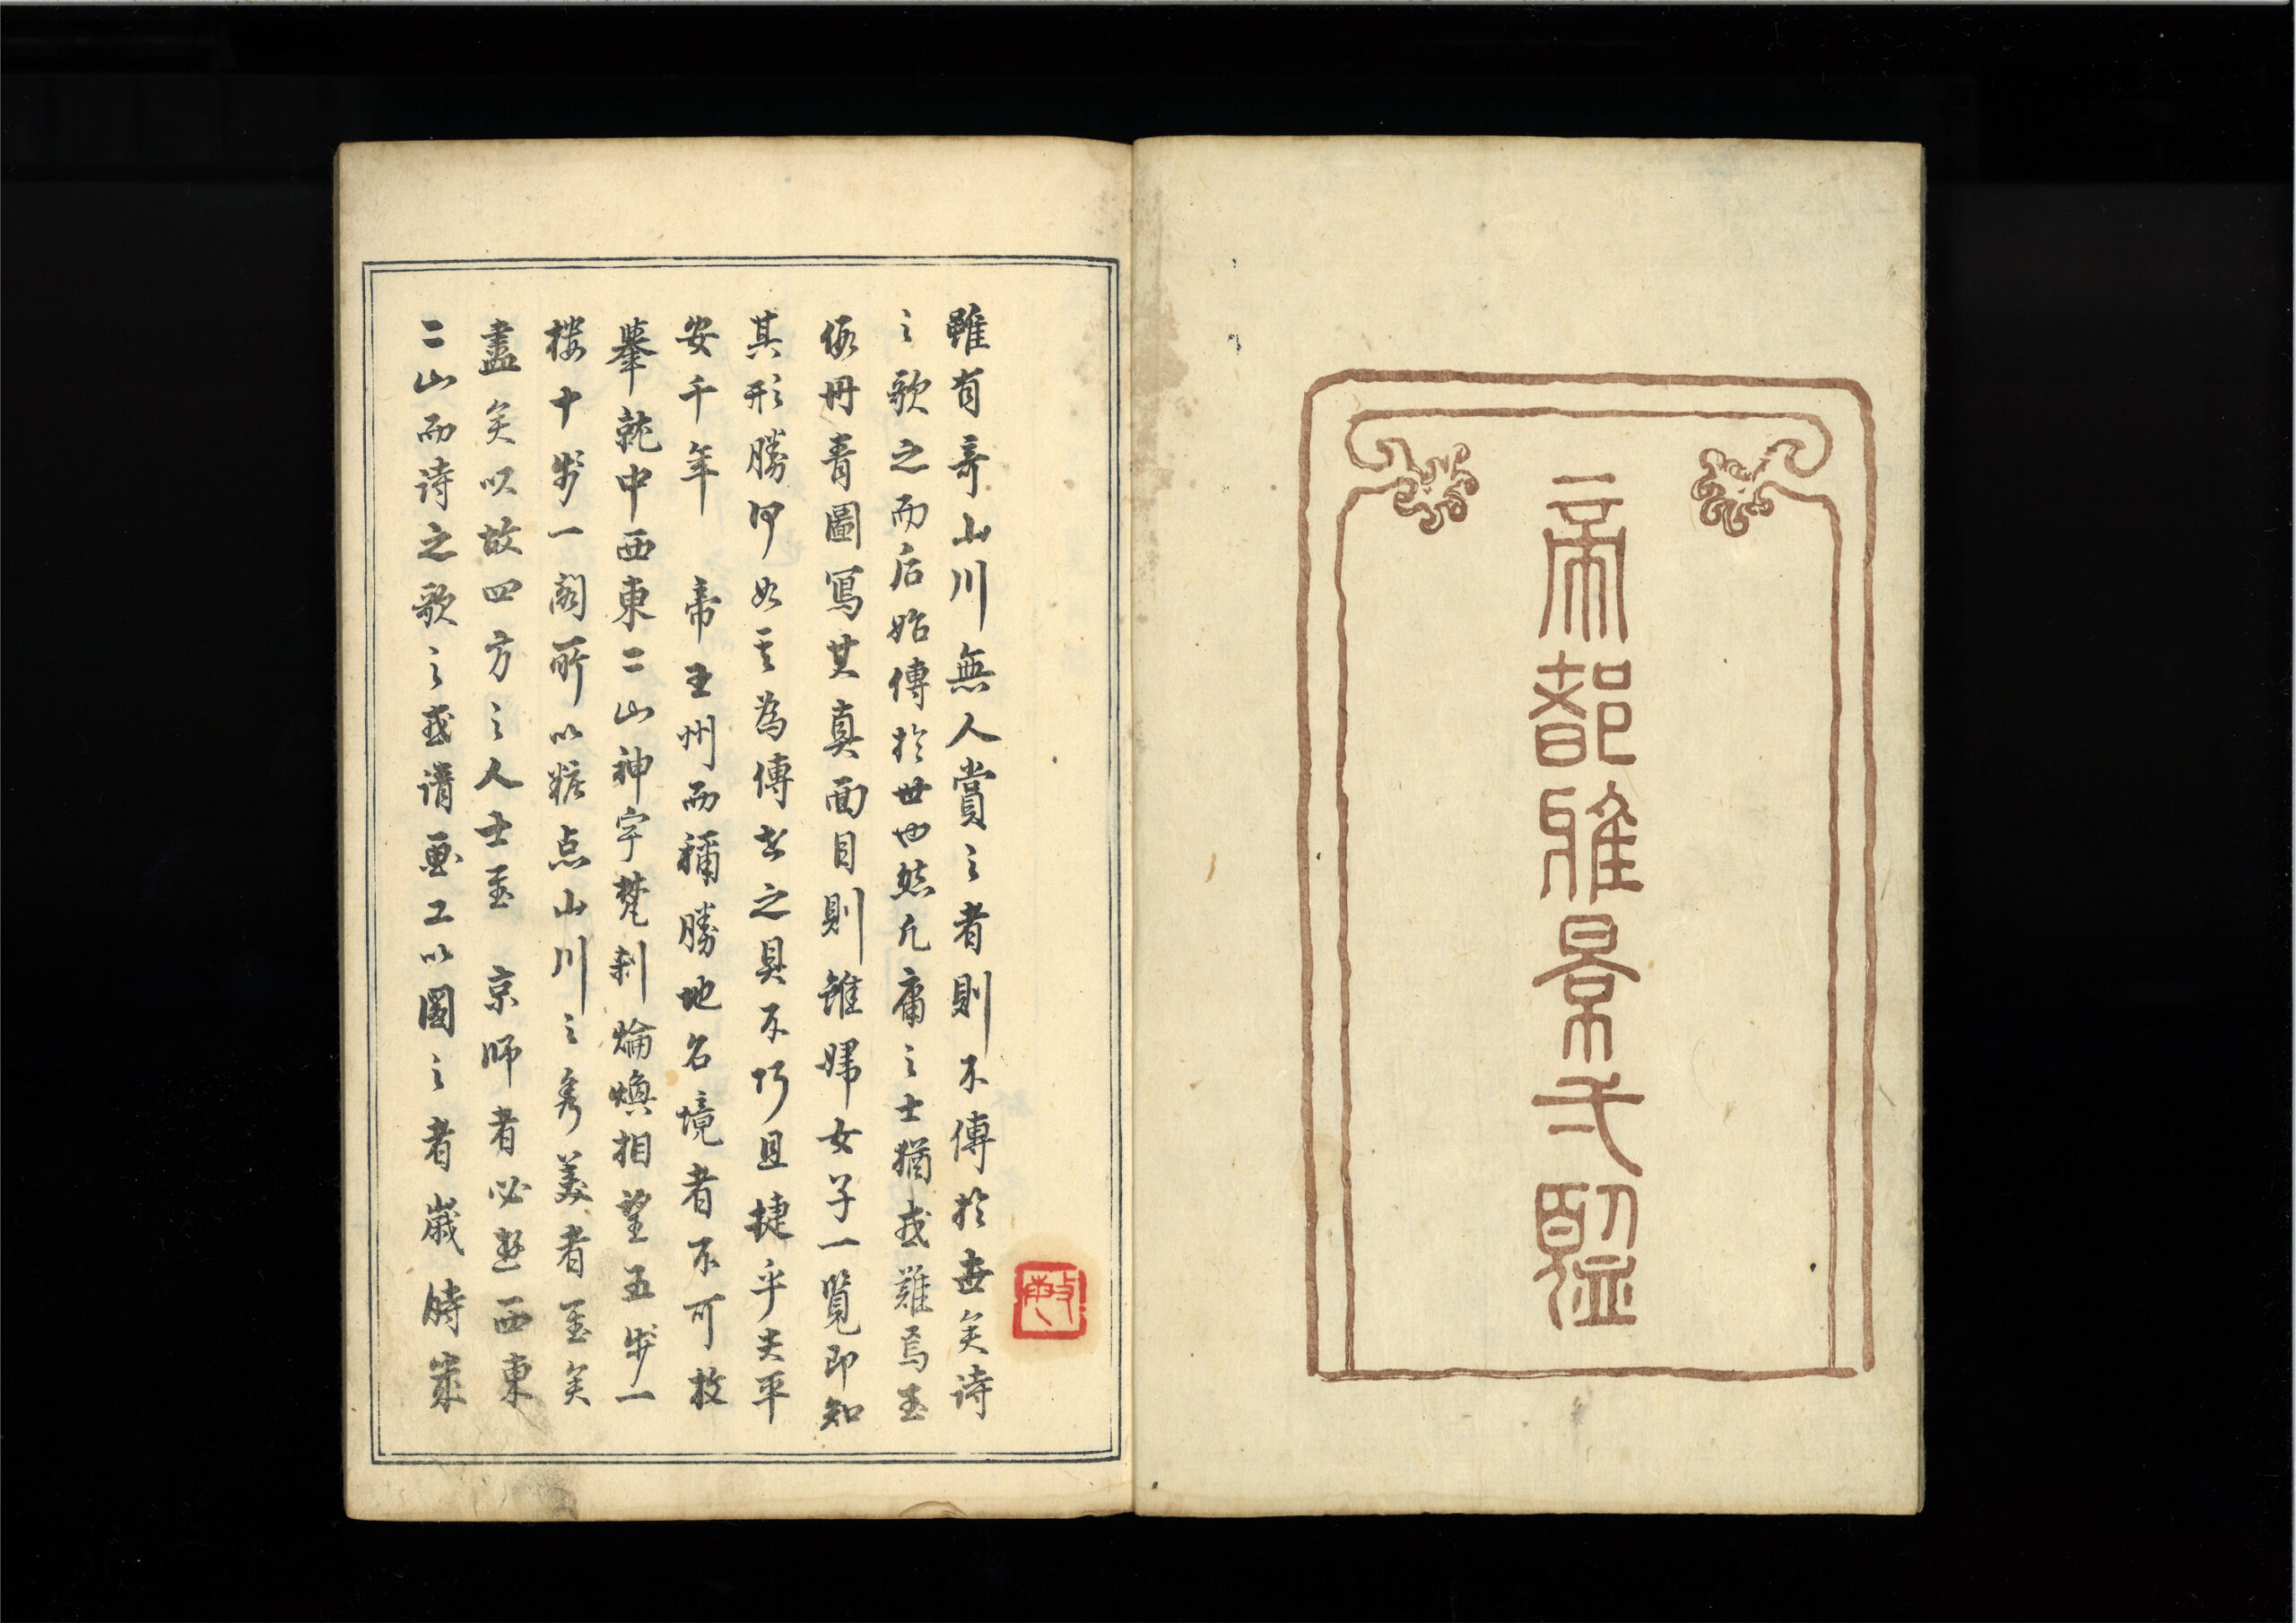 帝都雅景一覧
雖有奇山川無人賞之者則不傳於世矣詩
之歌之而后始傳於世也然凡庸之士猶或難焉至
假丹青圖寫其真面目則雖婦女子一覧即知
其形勝何如其為傳世之具不巧且捷乎夫平
安千年 帝王州而稱勝地名境者不可枚
擧就中西東二山神宇梵刹煥相望五歩一
楼十歩一閣所以粧点山川之秀美者至矣
盡矣以故四方之人士至 京師者必遊西東
二山而詩之歌之或請画工以圖之者歳時